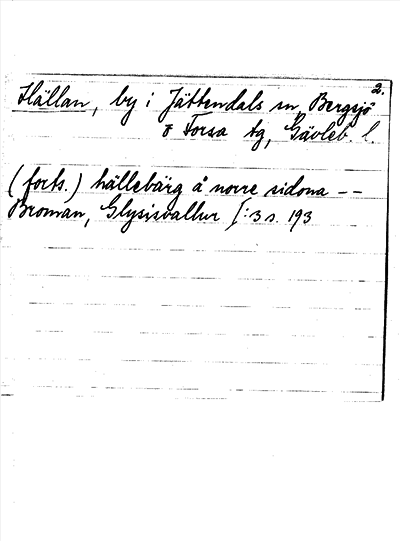 2.
Hällan, by i Jättendals sn, Bergsjö
o Forsa tg, Gävleb. l.
(forts.) hällebärg å norre sidona --
Broman, Glysisvallur [:3 s. 193